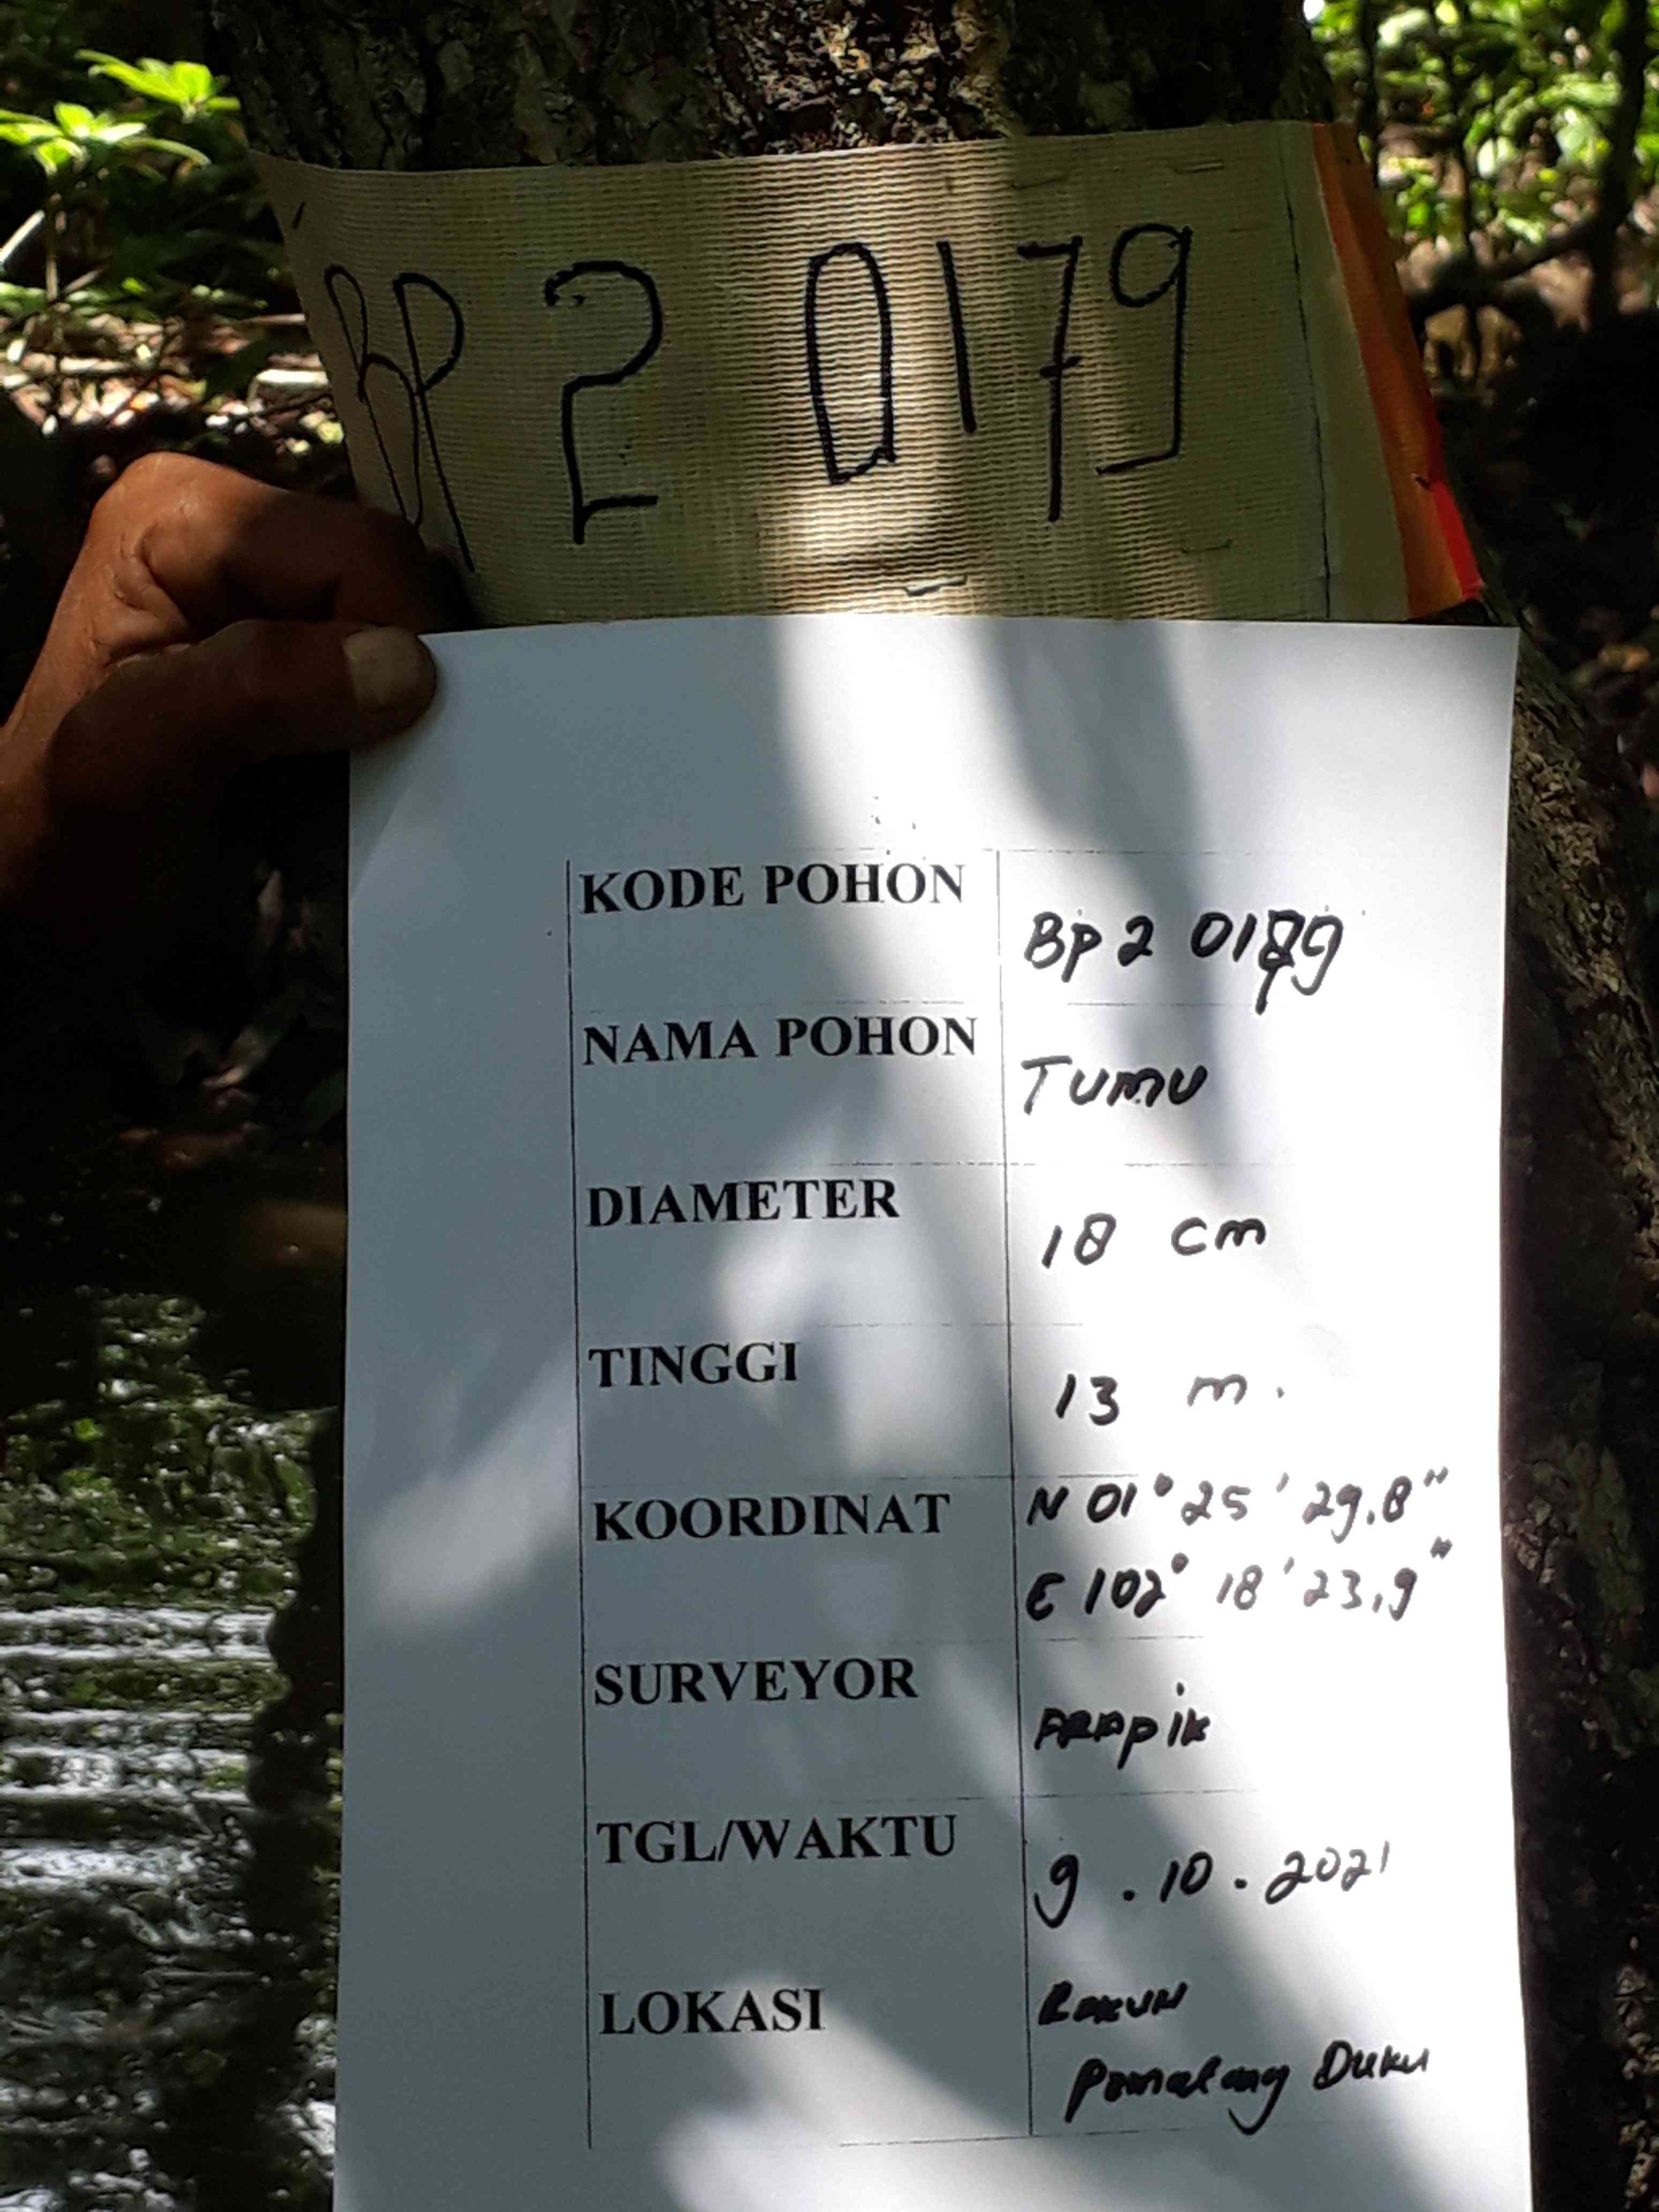 BP 2 0179
KODE POHON
Bp 2 0179
NAMA POHON
Tumu
DIAMETER
18 cm
TINGGI
13 m.
KOORDINAT
N 01° 25' 29.8"
E 102° 18' 23,9"
SURVEYOR
TGL/WAKTU
9.10.2021
LOKASI
Pematang Duku